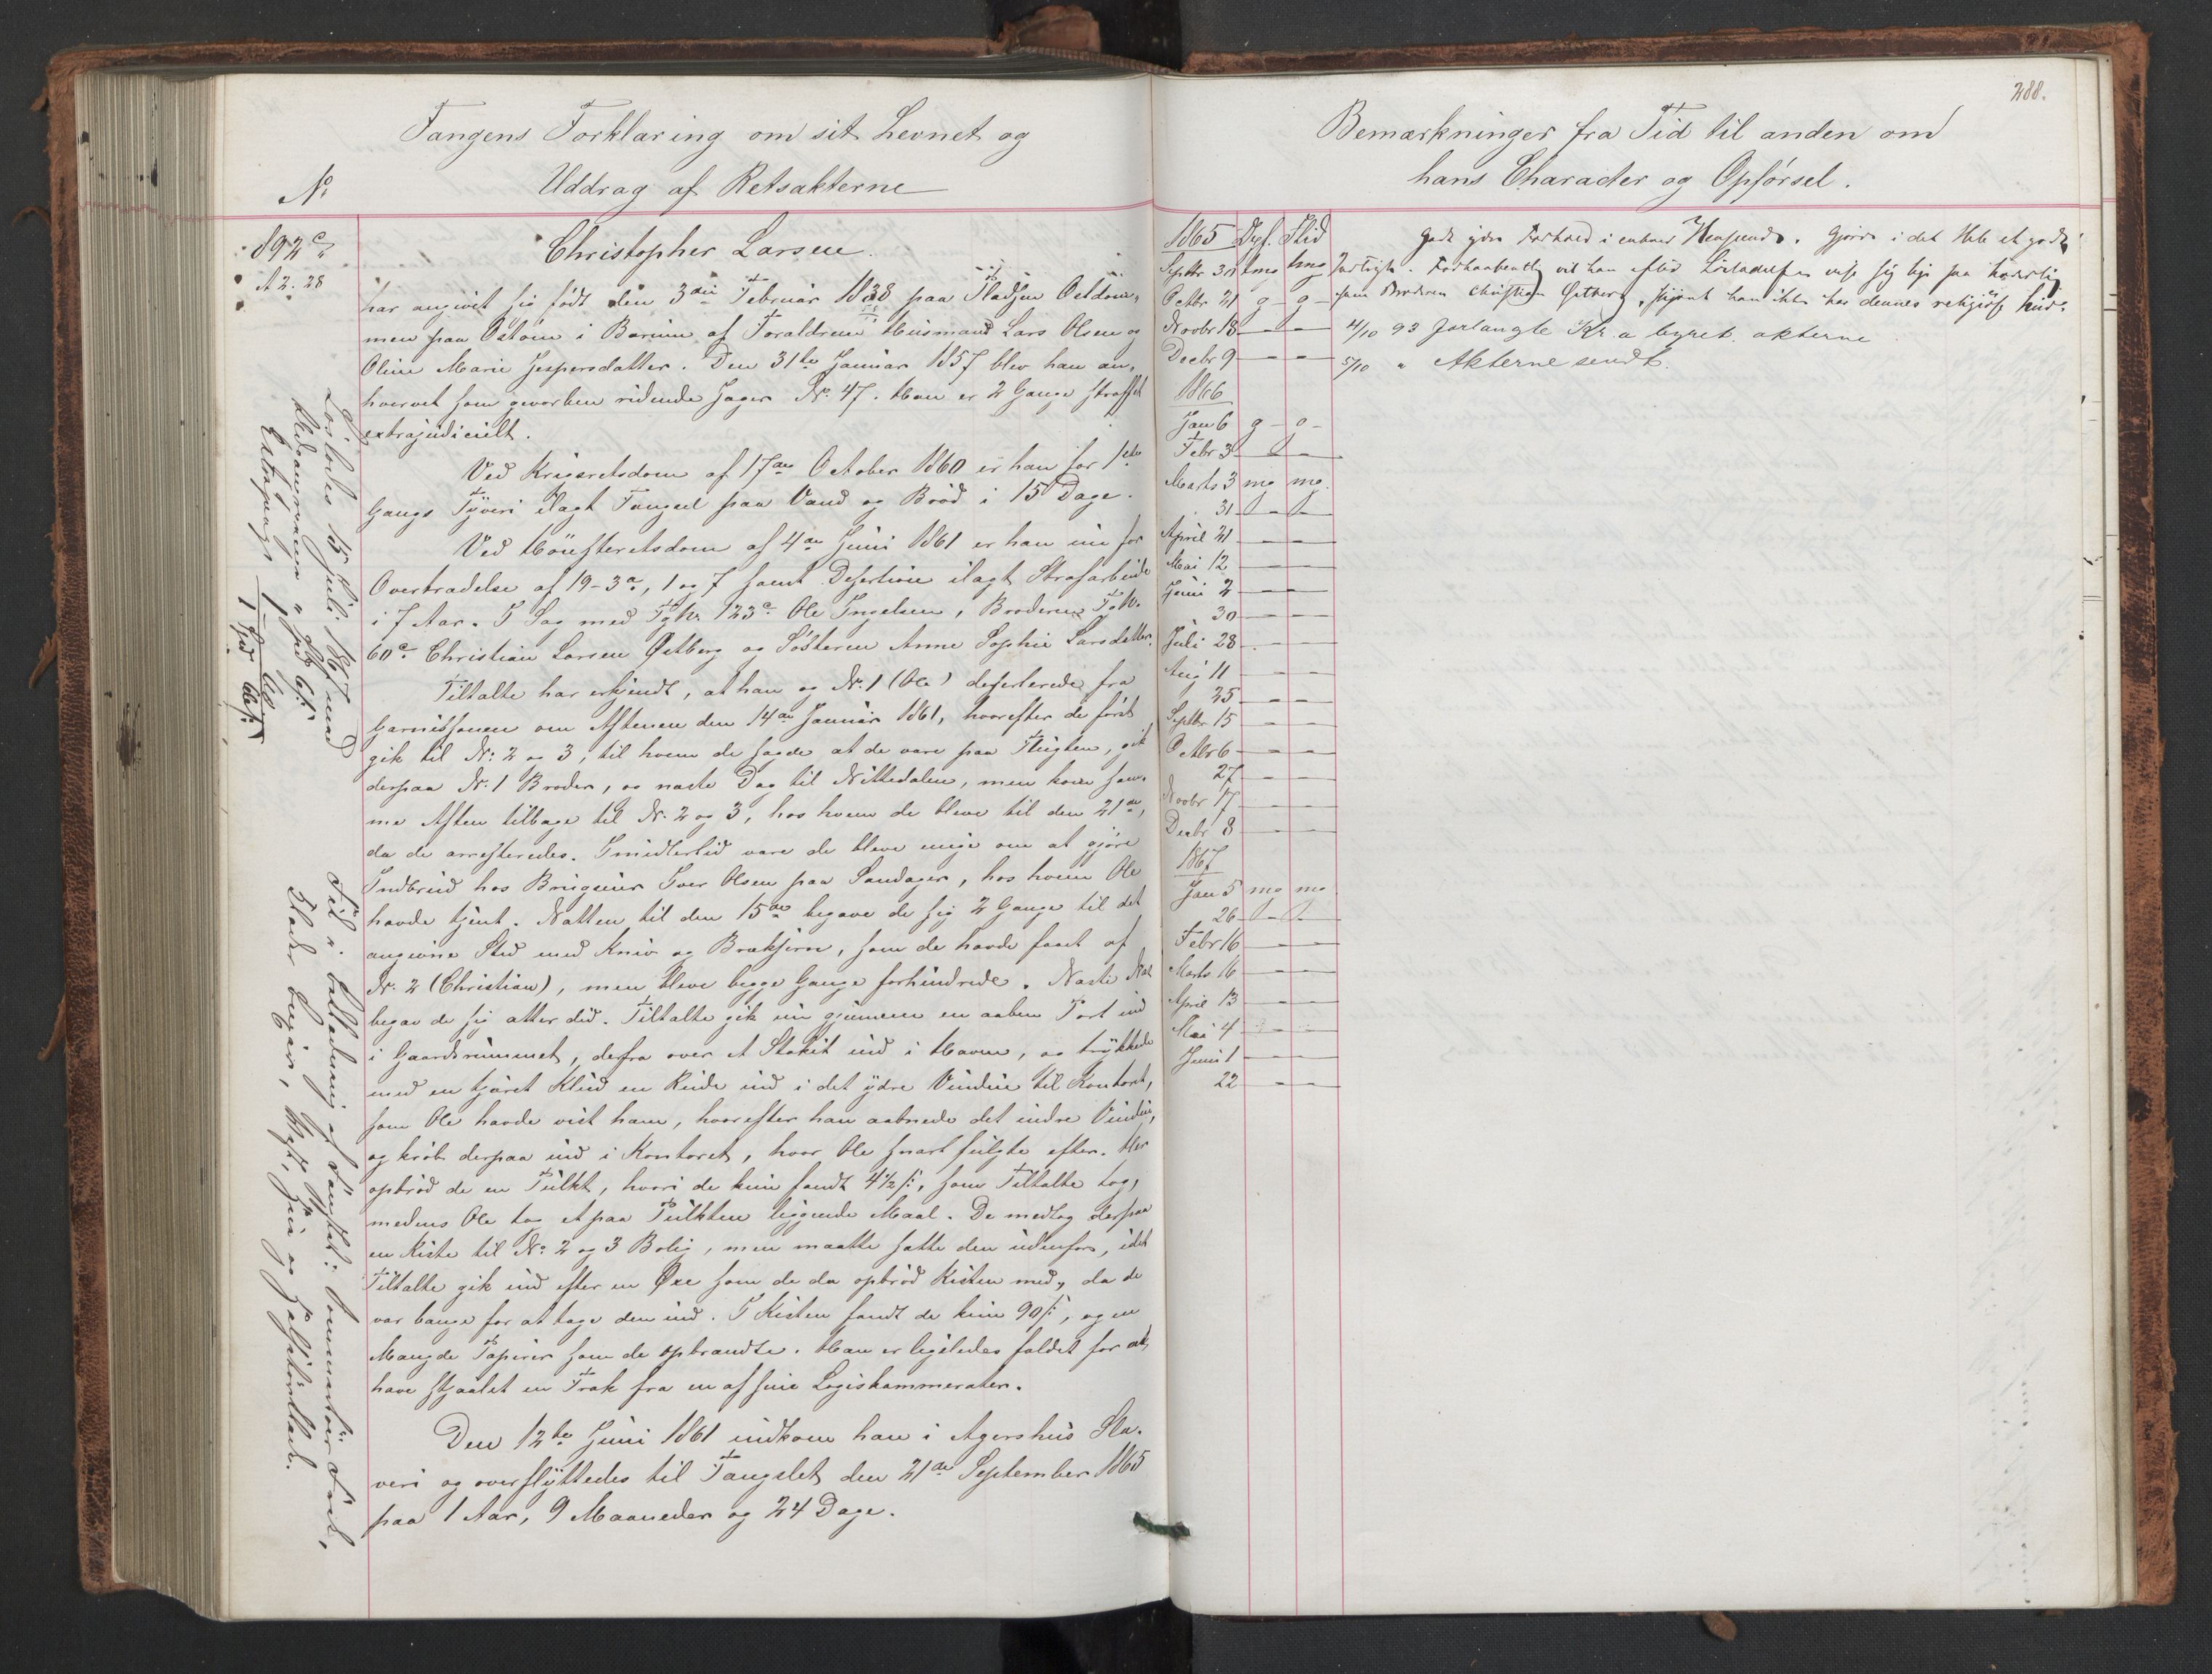 Fangens Forklaring om sit Levnet og
Uddrag af Retsakterne
No
892 c
A 2. 28
Christopher Larsen.
har angivet sig født den 3die Februar 1838 paa Pladsen Ostdom-
men paa Østern i Bærum af Forældrene Husmand Lars Olsen og
Oline Marie Jespersdatter. Den 31te Januar 1857 blev han an-
hvervet som gevorben ridende Jæger No. 47. Han er 2 Gange straffet
extrajudicielt.
Ved Krigsretsdom af 17de October 1860 er han for 1ste
Gangs Tyveri ilagt Fængsel paa Vand og Brød i 15 Dage.
Ved Höiesteretsdom af 4de Juni 1861 er han nu for
Overtrædelse af 19-3a, 1 og 7 samt Desertion ilagt Strafarbeide
i 7 Aar. I Sag med Fg No 123c Ole Ingelsen, Broderen Fg No.
60c Christian Larsen Østberg og Søsteren Anne Sophie Larsdatter.
Tiltalte har erkjendt, at han og No. 1 (Ole) deserterede fra
Garnisonen om Aftenen den 14de Januar 1861, hvorefter de først
gik til No. 2 og 3, til hvem de sagde at de vare paa Flugten, gik
derpaa No. 1 Broder, og næste Dag til Nittedalen, men kom sam-
me Aften tilbage til No. 2 og 3, hos hvem de bleve til den 21de,
da de arresteredes. Imidlertid vare de bleve enige om at gjøre
Indbrud hos Brugseier Iver Olsen paa Sandager, hos hvem Ole
havde tjent. Natten til den 15de begave de sig 2 Gange til det
angivne Sted med Kniv og Brækjern, som de havde faaet af
No. 2 (Christian), men bleve begge Gange forhindrede. Næste Nat
begav de sig atter did. Tiltalte gik nu gjennem en aaben Port ind
i Gaardsrummet, derfra over et Stakit ind i Haven, og trykkede
med en tjæret Klud en Rude ind i det ydre Vindue til Kontoret,
som Ole havde vist ham, hvorefter han aabnede det indre Vindue,
og krøb derpaa ind i Kontoret, hvor Ole snart fulgte efter. Her
opbrød de en Pulkt, hvori de kun fandt 4½ ſ, som Tiltalte tog,
medens Ole tog et paa Pulkten liggende Maal. De medtog derpaa
en Kiste til No. 2 og 3 Bolig, men maatte sætte den udenfor, idet
Tiltalte gik ind efter en Øxe som de da opbrød Kisten med, da de
var bange for at tage den ind. I Kisten fandt de kun 90 ſ, og en
Mængde Papirer som de opbrændte. Han er ligeledes fældet for at
have stjaalet en Frak fra en af sine Logiskammerater.
Den 12te Juni 1861 indkom han i Agershus Sla-
veri og overflyttedes til Fængslet den 21de September 1865
paa 1 Aar, 9 Maaneder og 24 Dage.
Løslodes 15 Juli 1867 med
1 Spd
Til
288.
Bemærkninger fra Tid til anden om
hans Character og Opførsel.
1865 Opf. Flid
Septbr 30 tmg tmg
Octbr 21 g - g -
Novbr 18 - -
Decbr 9 - -
1866
Jan 6 g - g -
Febr 3 - -
Marts 3 mg mg.
31 - -
April 21 - -
Mai 12 - -
Juni 2 - -
30 - -
Juli 28 - -
Aug 11 - -
25 - -
Septbr 15 - -
Octbr 6 - -
27 - -
Novbr 17 - -
Decbr 8 - -
1867
Jan 5 mg mg
26 - -
Febr 16 - -
Marts 16 - -
April 13 - -
Mai 4 - -
Juni 1 - -
22 - -
godt ydre Forhold i enhver Henseende. Gjorde i det Hele et godt
Indtryk. Forhaabentlig vil han efter Løsladelsen vise sig lige saa hæderlig
som Broderen Christian Østberg, skjønt han ikke har dennes religiøse Sind.
4/10 93 forlangte Kr.a byret. akterne
5/10 " Akterne sendt.